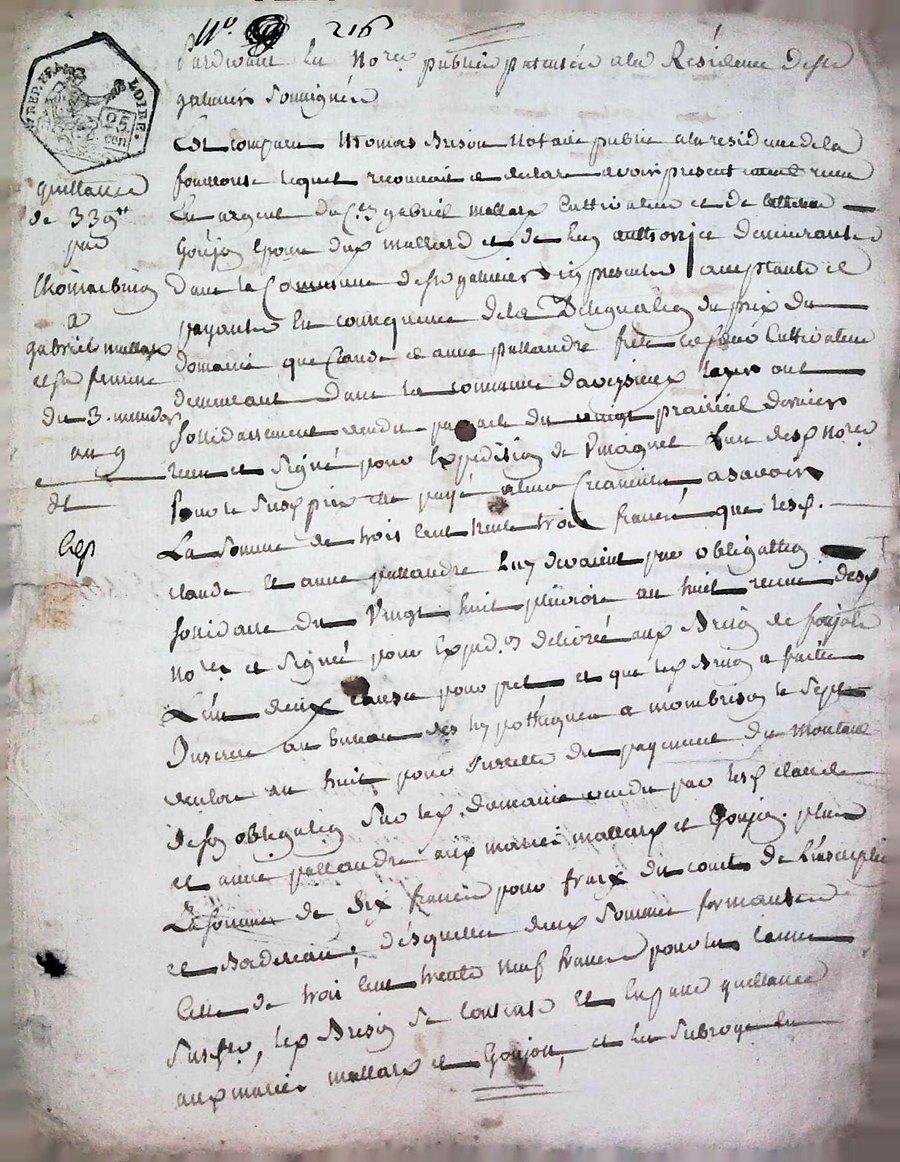 N.º 216
REP. FRA. LOIRE.
25 cen
pardevant Le Not.re public patenté a la Résidence de St
galmier soussigné
Est comparu thomas brison Notaire public a la residence de la
fouillouse lequel reconnait et declare avoir présentement recu
En argent du C.en gabriel mallard Cultivateur et de
Goujon Epouse dud mallard et de luy authorizée demeurants
Dans la Commune de St galmier icy presents acceptants et
payants En consequence de la Deleguation du prix du
domaine que Claude et anne pallandre frere et soeur Cultivateurs
demeurant dans la commune daveyzieux ont
sollidairement vendu par acte du vingt prairial dernier
recu et signé pour Expedition de Vmagnet L'un des d not.res
pour le susd prix etre payé a leurs Creanciers a savoir
La somme de trois Cent trente trois francs que lesd.
claude et anne pallandre Luy devaient par obligation
sollidaire du Vingt huit pluviose an huit recue desd
not.res et signé pour Exped.on délivrée aux Brison de
L'un deux pour pret et que led Brison a faite
Inscrire au bureau des hypothèques a montbrison le sept
an huit pour sureté du payement du montant
de son obligation sur led. domaine vendu par lesd claude
et anne pallandre aux mariés mallard et Goujon. plus
La somme de Six francs pour fraix du cout de L'inscription
et Bordereau, desquelles deux sommes formants
Celle de trois Cent trente neuf francs pour les causes
susd., led Brison se contente Et En passe quittance
aux mariés mallard et Goujon, et les subroge En
quittance
de 339 tt
par
thomas brison
a
gabriel mallard
et sa femme
du 3. messidor
an 9